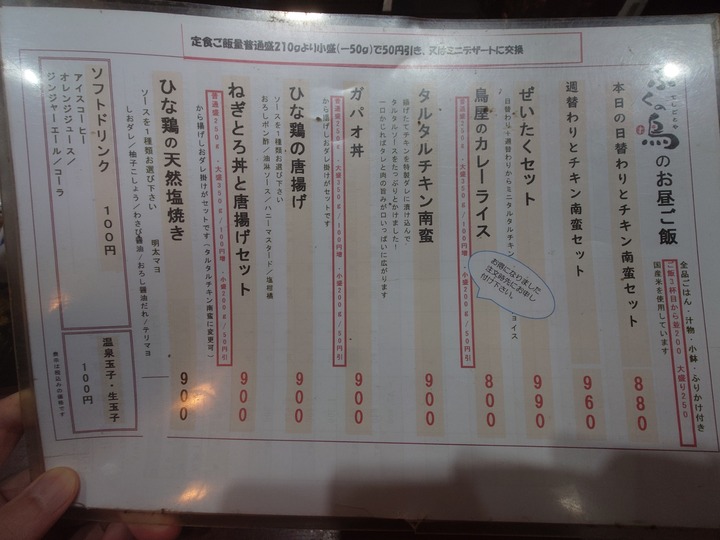 定食ご飯量普通盛210gより小盛(ー50g)で50円引き、又はミニデザートに交換
ふくの鳥のお昼ご飯
全品ごはん・汁物・小鉢・ふりかけ付き
ご飯3杯目から並200 大盛り250
国産米を使用しています
本日の日替わりとチキン南蛮セット
880
週替わりとチキン南蛮セット
960
ぜいたくセット
990
日替わり+週替わりからミニタルタルチキン
お肉になりました
付け下さい。
鳥屋のカレーライス
800
普通盛250g・大盛350g/100円増・小盛200g/50円引
タルタルチキン南蛮
900
揚げたてチキンを特製ダレに漬け込んで
タルタルソースをたっぷりとかけました!
一口かじればタレと肉の旨みが口いっぱいに広がります
ガパオ丼
900
普通盛250g・大盛350g/100円増・小盛200g/50円引
から揚げしおダレ掛けがセットです
ひな鶏の唐揚げ
900
ソースを1種類お選び下さい
おろしポン酢/油淋ソース/ハニーマスタード/塩柑橘
ねぎとろ丼と唐揚げセット
900
普通盛250g・大盛350g/100円増・小盛200g/50円引
から揚げしおダレ掛けがセットです(タルタルチキン南蛮に変更可)
ひな鶏の天然塩焼き
900
ソースを1種類お選び下さい 明太マヨ
しおダレ/柚子こしょう/わさび醤油/おろし醤油だれ/テリマヨ
ソフトドリンク 100円
アイスコーヒー
オレンジジュース/
ジンジャーエール/コーラ
温泉玉子・生玉子
100円